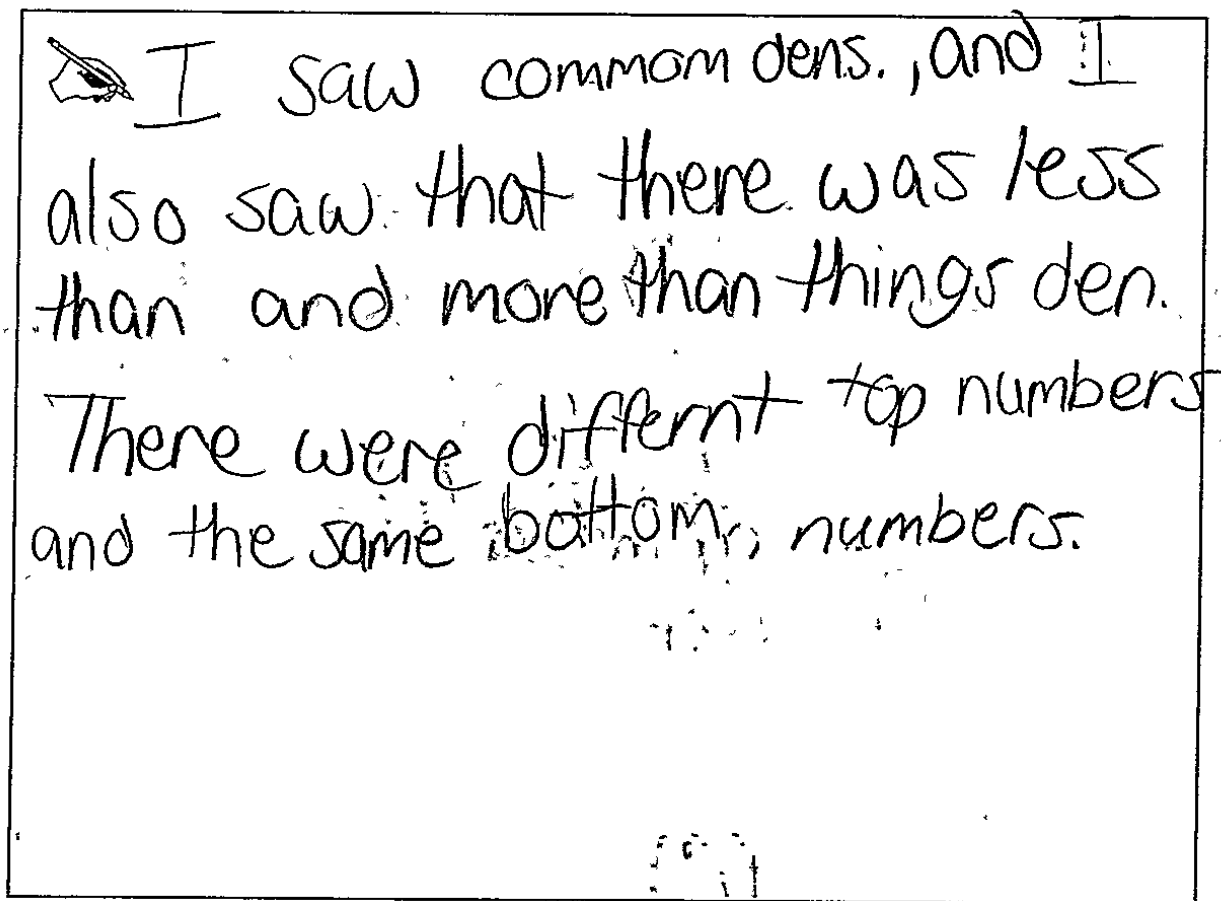 I saw commom dens., and I
also saw that there was less
than and more than things den.
There were differnt top numbers
and the same bottom numbers.